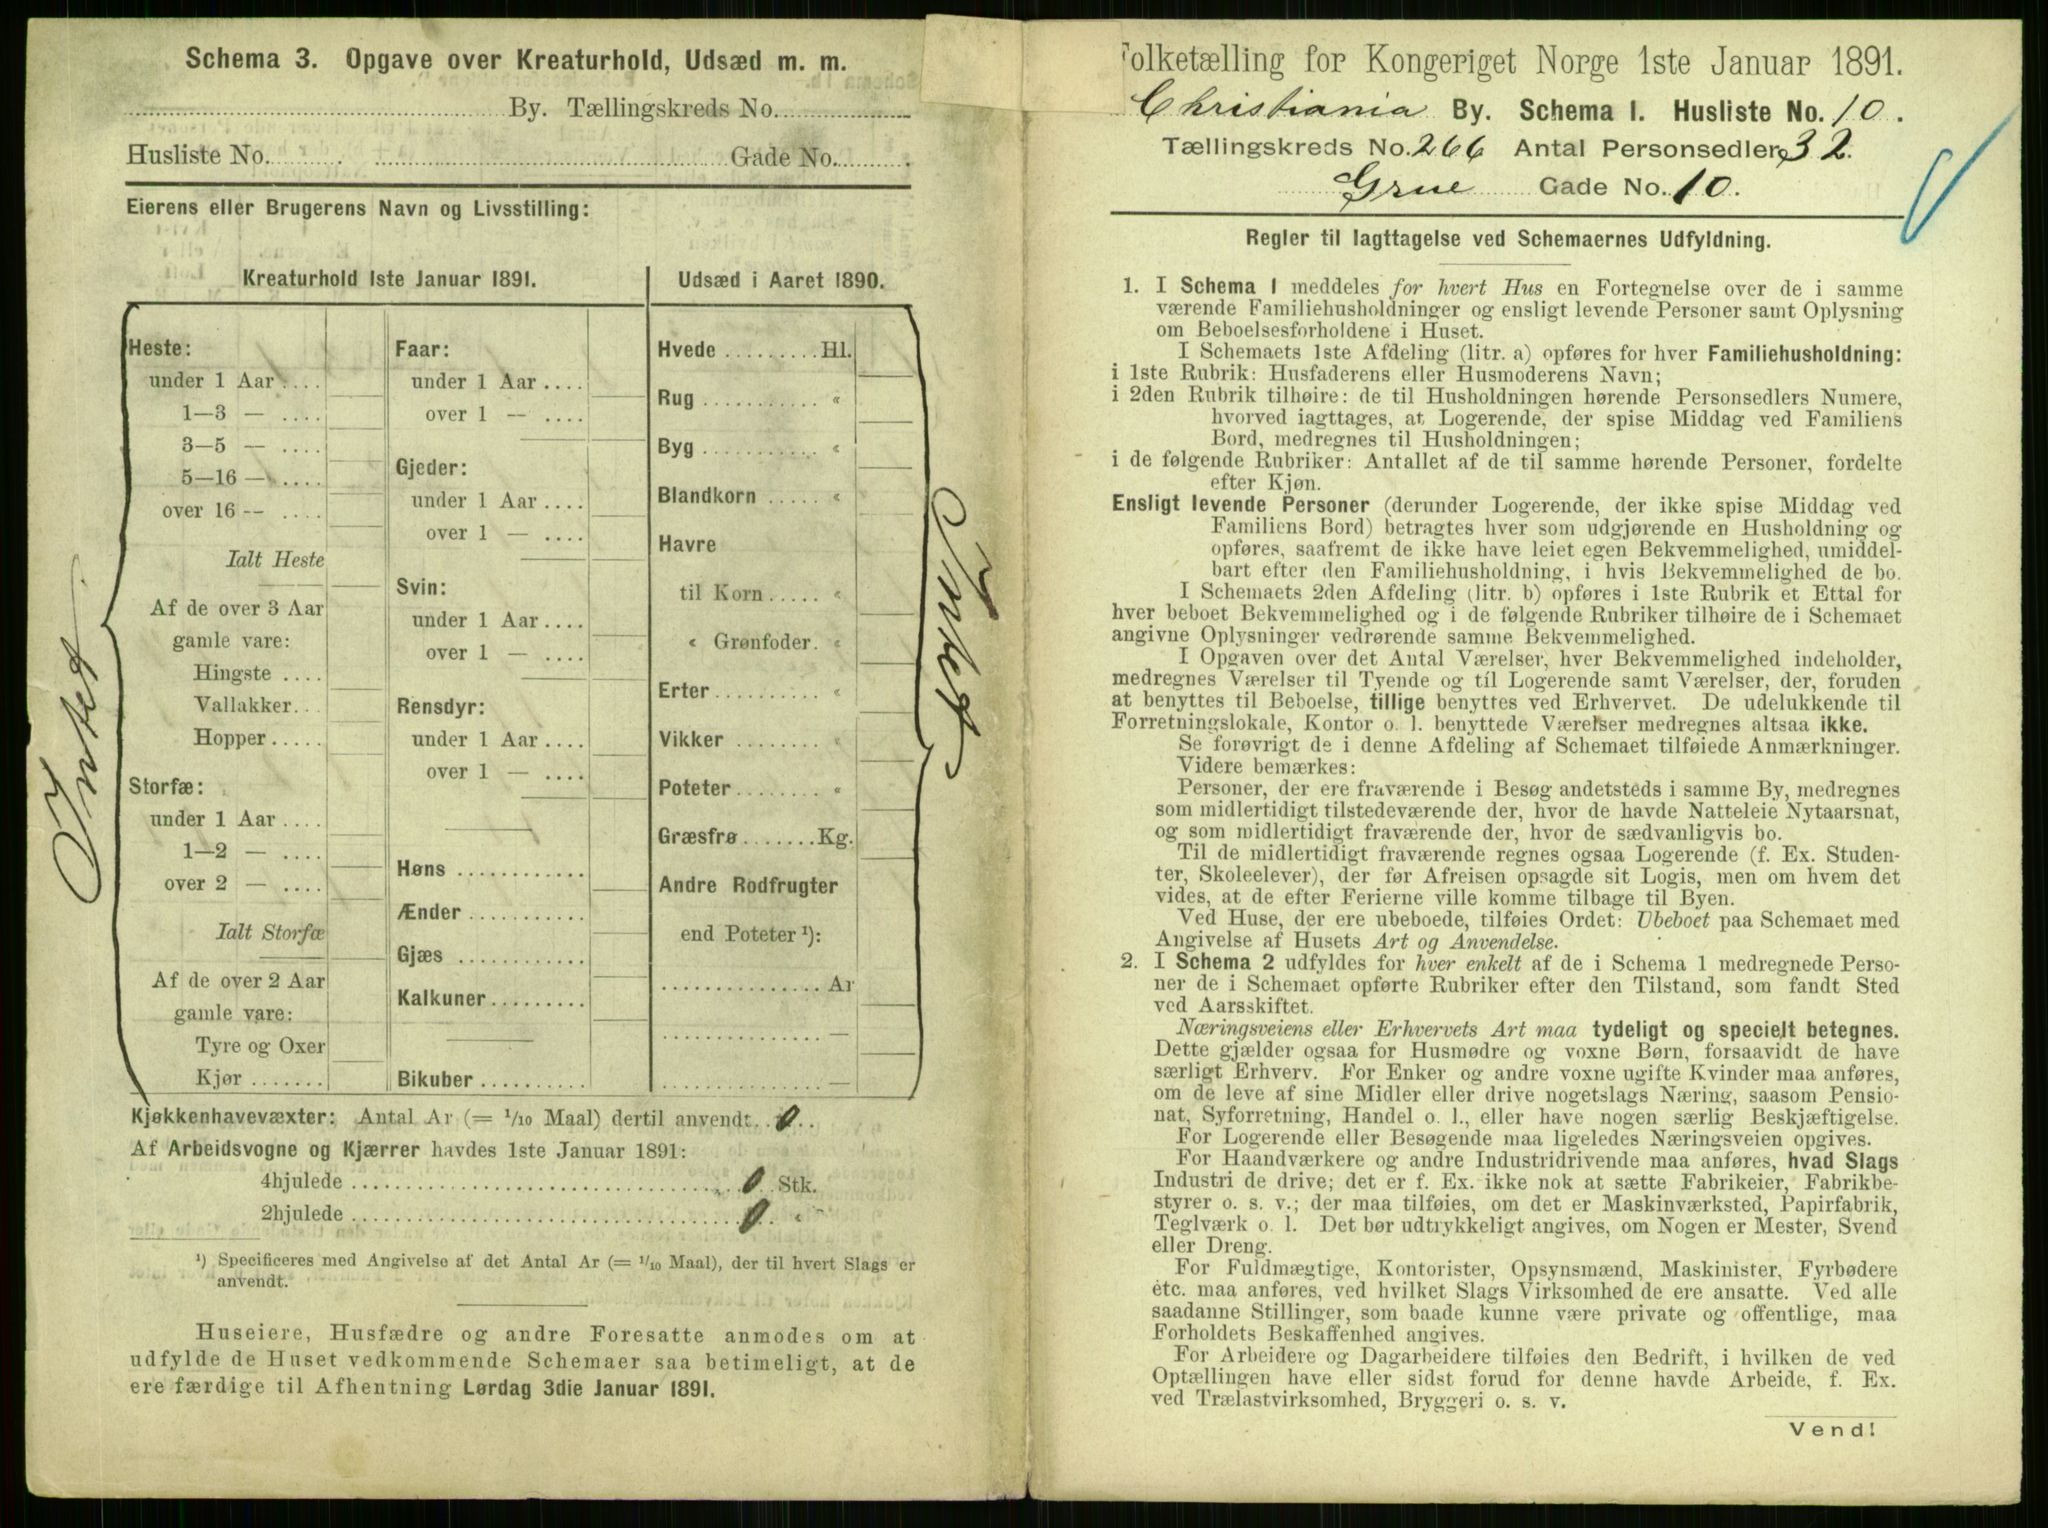 Schema 3. Opgave over Kreaturhold, Udsæd m. m.
By. Tællingskreds No.
Husliste No. Gade No.
Eierens eller Brugerens Navn og Livsstilling:
Kreaturhold 1ste Januar 1891.
Heste:
under 1 Aar
1—3 —
3—5 —
5—16 —
over 16 —
Ialt Heste
Af de over 3 Aar
gamle vare:
Hingste
Vallakker
Hopper
Storfæ:
under 1 Aar
1—2 —
over 2 —
Ialt Storfæ
Af de over 2 Aar
gamle vare:
Tyre og Oxer
Kjør
Intet
Faar:
under 1 Aar
over 1 —
Gjeder:
under 1 Aar
over 1 —
Svin:
under 1 Aar
over 1 —
Rensdyr:
under 1 Aar
over 1 —
Høns
Ænder
Gjæs
Kalkuner
Bikuber
Udsæd i Aaret 1890.
Hvede Hl.
Rug «
Byg «
Blandkorn «
Havre
til Korn «
« Grønfoder «
Erter «
Vikker «
Poteter «
Græsfrø Kg.
Andre Rodfrugter
end Poteter ¹):
Ar
—
—
Intet
Kjøkkenhavevæxter: Antal Ar (= 1/10 Maal) dertil anvendt 0
Af Arbeidsvogne og Kjærrer havdes 1ste Januar 1891:
4hjulede 0 Stk.
2hjulede 0 «
¹) Specificeres med Angivelse af det Antal Ar (= 1/10 Maal), der til hvert Slags er
anvendt.
Huseiere, Husfædre og andre Foresatte anmodes om at
udfylde de Huset vedkommende Schemaer saa betimeligt, at de
ere færdige til Afhentning Lørdag 3die Januar 1891.
Folketælling for Kongeriget Norge 1ste Januar 1891.
Christiania By. Schema I. Husliste No. 10.
Tællingskreds No. 266 Antal Personsedler 32.
Grue Gade No. 10.
Regler til Iagttagelse ved Schemaernes Udfyldning.
1. I Schema 1 meddeles for hvert Hus en Fortegnelse over de i samme
værende Familiehusholdninger og ensligt levende Personer samt Oplysning
om Beboelsesforholdene i Huset.
I Schemaets 1ste Afdeling (litr. a) opføres for hver Familiehusholdning:
i 1ste Rubrik: Husfaderens eller Husmoderens Navn;
i 2den Rubrik tilhøire: de til Husholdningen hørende Personsedlers Numere,
hvorved iagttages, at Logerende, der spise Middag ved Familiens
Bord, medregnes til Husholdningen;
i de følgende Rubriker: Antallet af de til samme hørende Personer, fordelte
efter Kjøn.
Ensligt levende Personer (derunder Logerende, der ikke spise Middag ved
Familiens Bord) betragtes hver som udgjørende en Husholdning og
opføres, saafremt de ikke have leiet egen Bekvemmelighed, umiddel-
bart efter den Familiehusholdning, i hvis Bekvemmelighed de bo.
I Schemaets 2den Afdeling (litr. b) opføres i 1ste Rubrik et Ettal for
hver beboet Bekvemmelighed og i de følgende Rubriker tilhøire de i Schemaet
angivne Oplysninger vedrørende samme Bekvemmelighed.
I Opgaven over det Antal Værelser, hver Bekvemmelighed indeholder,
medregnes Værelser til Tyende og til Logerende samt Værelser, der, foruden
at benyttes til Beboelse, tillige benyttes ved Erhvervet. De udelukkende til
Forretningslokale, Kontor o. l. benyttede Værelser medregnes altsaa ikke.
Se forøvrigt de i denne Afdeling af Schemaet tilføiede Anmærkninger.
Videre bemærkes:
Personer, der ere fraværende i Besøg andetsteds i samme By, medregnes
som midlertidigt tilstedeværende der, hvor de havde Natteleie Nytaarsnat,
og som midlertidigt fraværende der, hvor de sædvanligvis bo.
Til de midlertidigt fraværende regnes ogsaa Logerende (f. Ex. Studen-
ter, Skoleelever), der før Afreisen opsagde sit Logis, men om hvem det
vides, at de efter Ferierne ville komme tilbage til Byen.
Ved Huse, der ere ubeboede, tilføies Ordet: Ubeboet paa Schemaet med
Angivelse af Husets Art og Anvendelse.
2. I Schema 2 udfyldes for hver enkelt af de i Schema 1 medregnede Perso-
ner de i Schemaet opførte Rubriker efter den Tilstand, som fandt Sted
ved Aarsskiftet.
Næringsveiens eller Erhvervets Art maa tydeligt og specielt betegnes.
Dette gjælder ogsaa for Husmødre og voxne Børn, forsaavidt de have
særligt Erhverv. For Enker og andre voxne ugifte Kvinder maa anføres,
om de leve af sine Midler eller drive nogetslags Næring, saasom Pensio-
nat, Syforretning, Handel o. l., eller have nogen særlig Beskjæftigelse.
For Logerende eller Besøgende maa ligeledes Næringsveien opgives.
For Haandværkere og andre Industridrivende maa anføres, hvad Slags
Industri de drive; det er f. Ex. ikke nok at sætte Fabrikeier, Fabrikbe-
styrer o. s. v.; der maa tilføies, om det er Maskinværksted, Papirfabrik,
Teglværk o. l. Det bør udtrykkeligt angives, om Nogen er Mester, Svend
eller Dreng.
For Fuldmægtige, Kontorister, Opsynsmænd, Maskinister, Fyrbødere
etc. maa anføres, ved hvilket Slags Virksomhed de ere ansatte. Ved alle
saadanne Stillinger, som baade kunne være private og offentlige, maa
Forholdets Beskaffenhed angives.
For Arbeidere og Dagarbeidere tilføies den Bedrift, i hvilken de ved
Optællingen have eller sidst forud for denne havde Arbeide, f. Ex.
ved Trælastvirksomhed, Bryggeri o. s. v.
Vend!